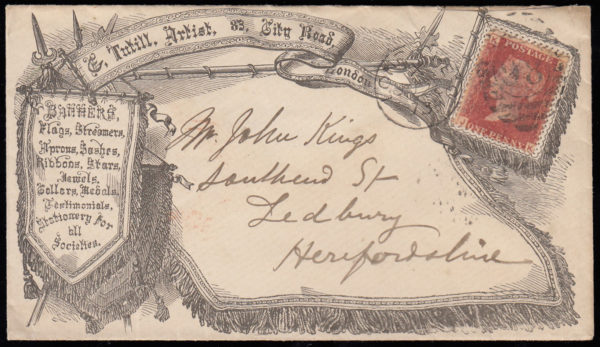 G. Tutill, Artist, 83, City Road,
London
BANNERS,
Flags, Streamers,
Aprons, Sashes,
Ribbons, Stars,
Jewels,
Collers, Medals,
Testimonials,
Stationery for
all
Societies.
Mr. John Kings
Southend St
Ledbury
Herefordshire
POSTAGE
ONE PENNY